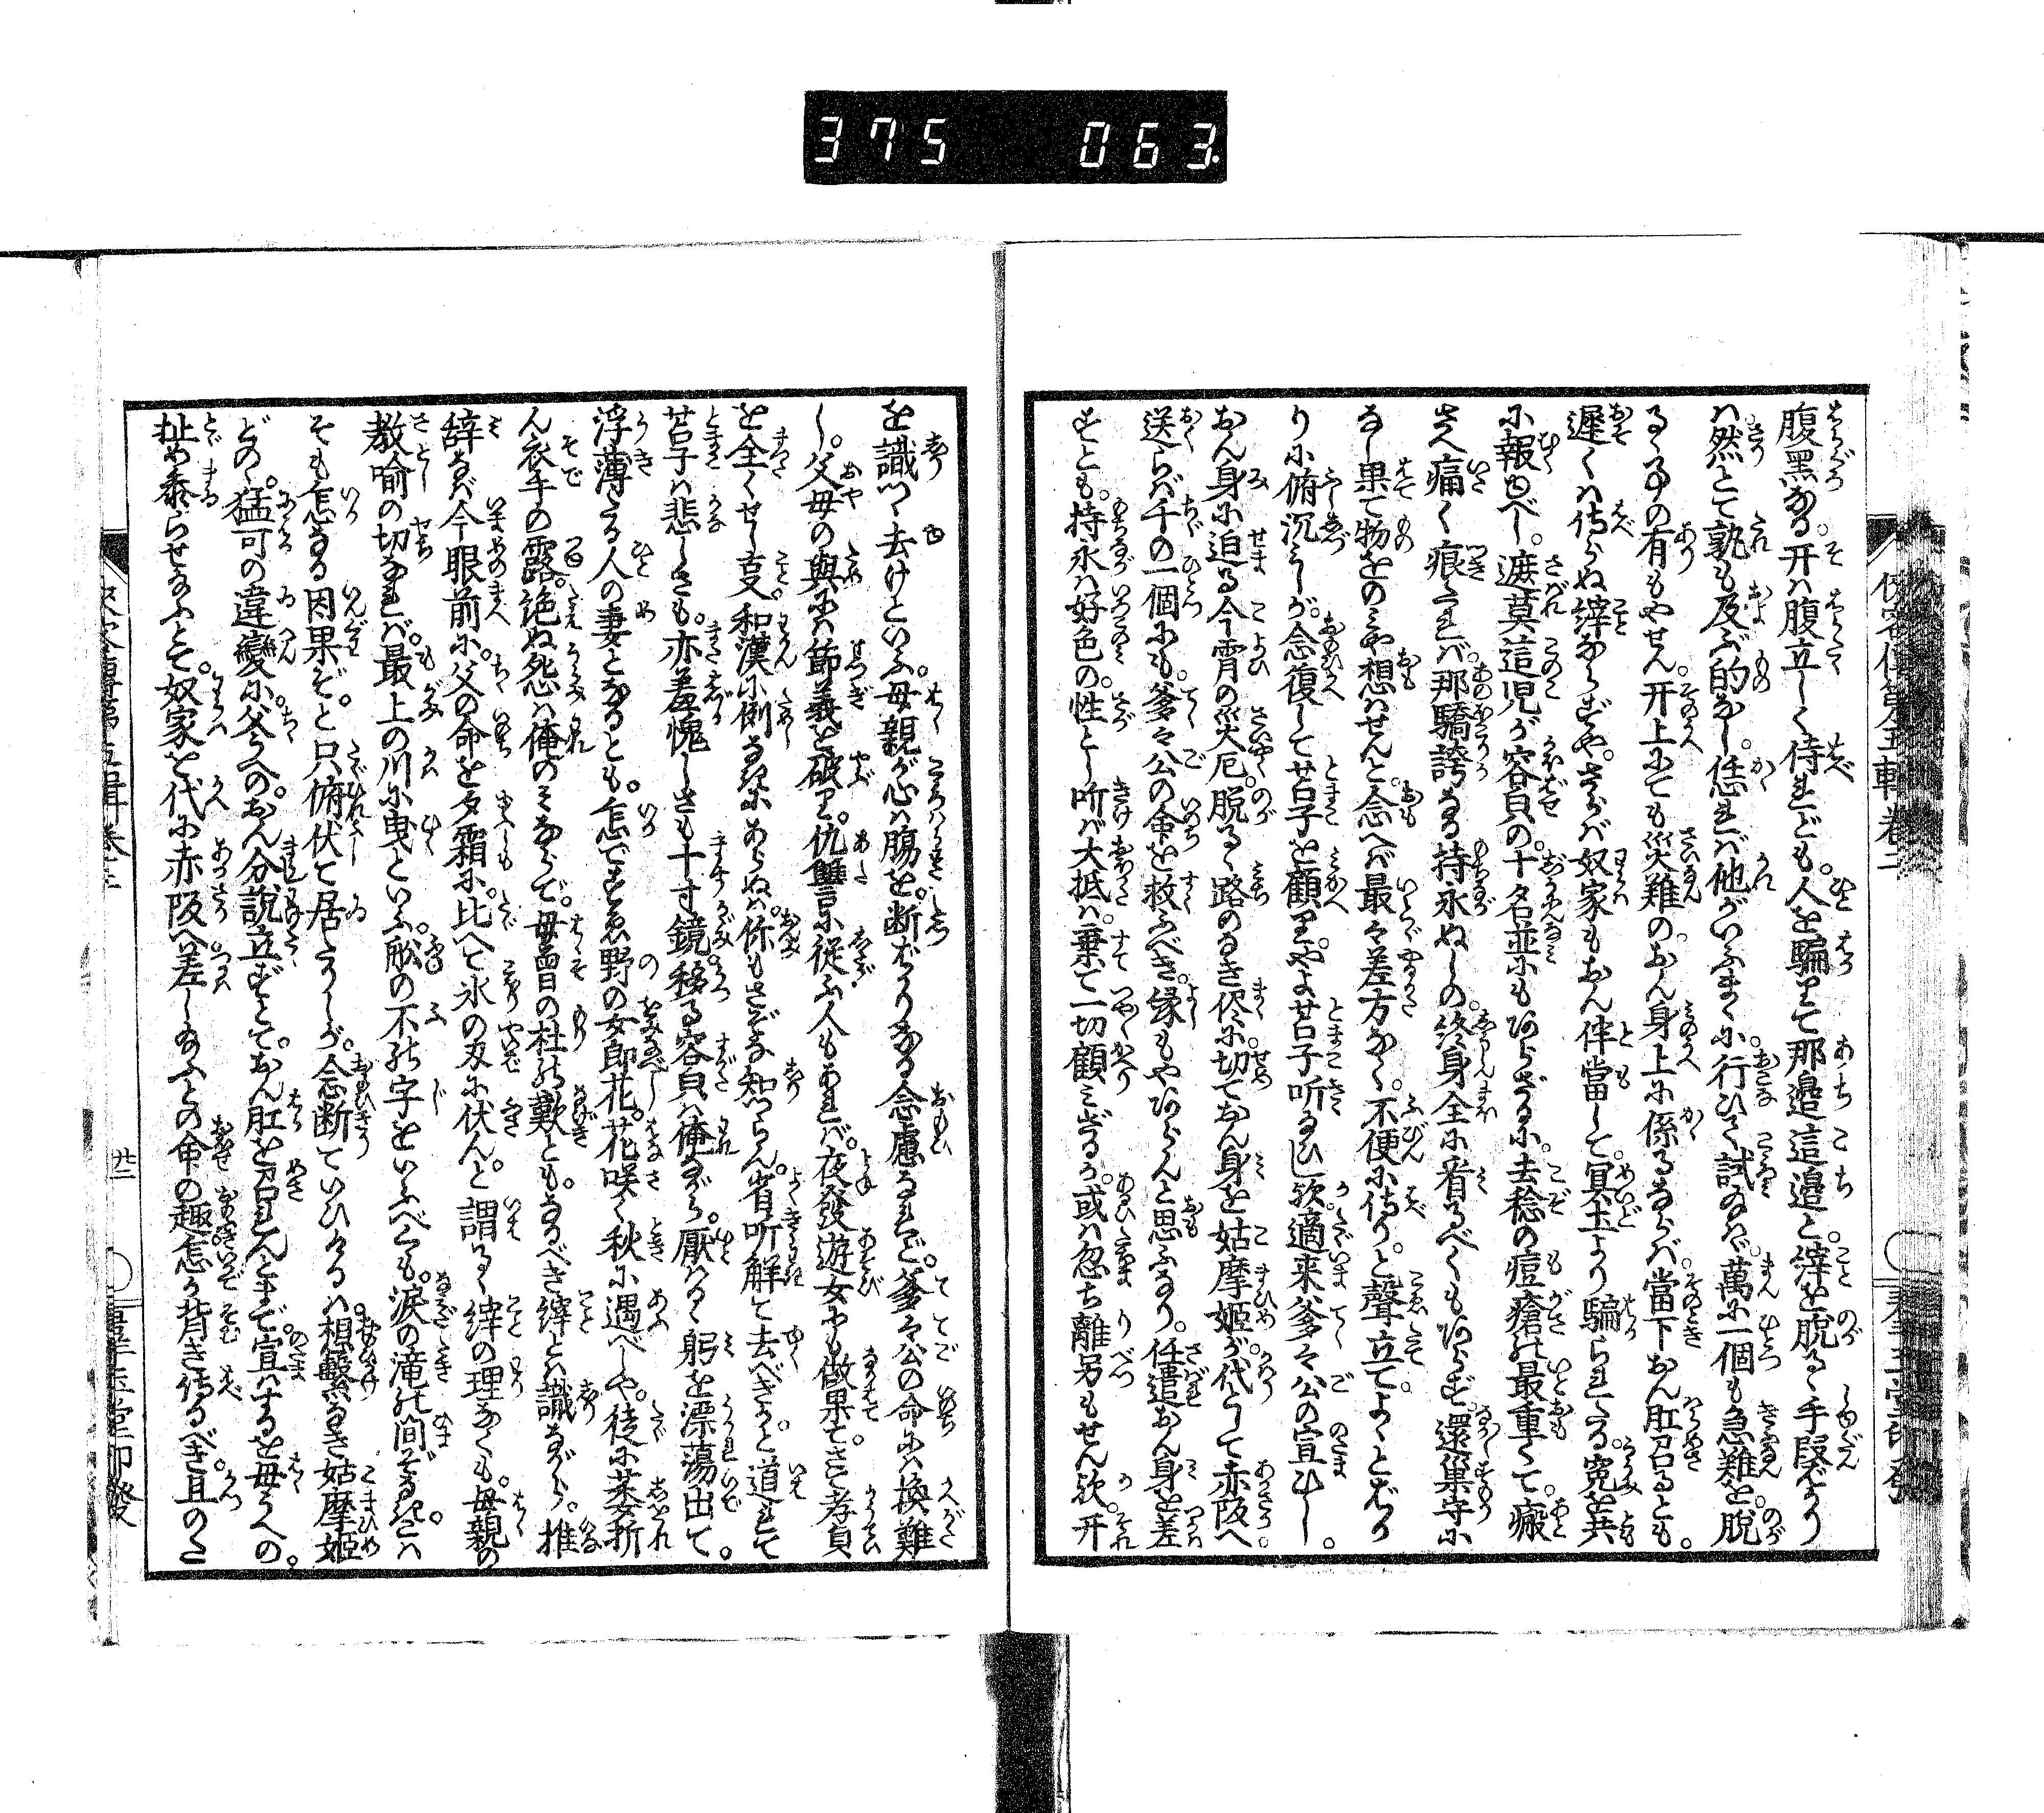 375 063
腹黑なる。开は腹立しく侍れども。人を騙りて那邉這邉と。縡を脱るゝ手段ばかり
は然とて孰も及ぶ的なし。恁れば他がいふまゝに。行ひて試みなば。萬に一個も急難を。脱
るゝ事の有もやせん。开上にても災難の。おん身上に係るならば。當下おん肚召るとも。
遲くは侍らぬ縡ならずや。さらば奴家もおん伴當して。冥土より騙られたる。寃を共
に報ゆべし。遮莫這児が容貌の。十名並にもあらざるに。去稔の痘瘡の最重くて。瘢
さへ痛く痕たれば。那驕誇なる持永ぬしの。終身全に看るべくもあらず。還巢守に
なし果て物をのみ想はせんと。念へば最々差方なく。不便に侍り。と聲立て。よゝとばか
りに俯沉みしが。念復して苫子を顧りやよ苫子听るひし欤。適来爹々公の宣ひし。
おん身に迫る今宵の災厄。脱るゝ路のなき侭に。切ておん身を姑摩姬が。代として赤阪へ
送らば千の一個にも。爹々公の命を救ふべき。縁もやあらんと思ふなり。任遣おん身を差
すとも。持永は好色の。性とし听ば大抵は。棄て一切顧みざるか。或は忽ち離別もせん欤。开
を識つゝ去けといふ。母親が心は腸を。断ばかりなる念慮なれど。爹々公の命には換難
し。父母の與には節義を破り。仇讐に從ふ人もあれば。夜發遊女にも做果てき。孝貞
を全くせし㕝。和漢に例なきにあらぬは。你もさぞな知つらん。省听解て去べきかと。道れて
苫子は悲しさも。亦羞愧しさも十寸鏡。移る容貌は俺ながら。厭はしく躬を漂蕩出て。
浮薄たる人の妻となるとも。怎でするゑ野の女郎花。花咲く秋に遇べしや。徒に萎折
ん衣手の露。絶ぬ怨は俺のみならで。母曽の杜の歎とも。なるべき縡とは識ながら。推
辞なば今眼前に。父の命を夕霜に。比へて氷の刃に伏んと。謂るゝ縡の理なくも。母親の
教喩の切なれば。最上の川に曳といふ。舩の不の字をいふべくも。涙の滝の間ぞなき。こは
そも怎なる因果ぞ。と只俯伏て居たりしが。念断ていひけるは。相繋なき姑摩姬
どのゝ。猛可の違變に。父うへの。おん分說立ずとて。おん肚を召れんまで。宣はするを母うへの。
扯め泰らせ給ふとて。奴家を代に赤阪へ差し給ふとの命の趣怎か背き侍るべき。且のた
廿二